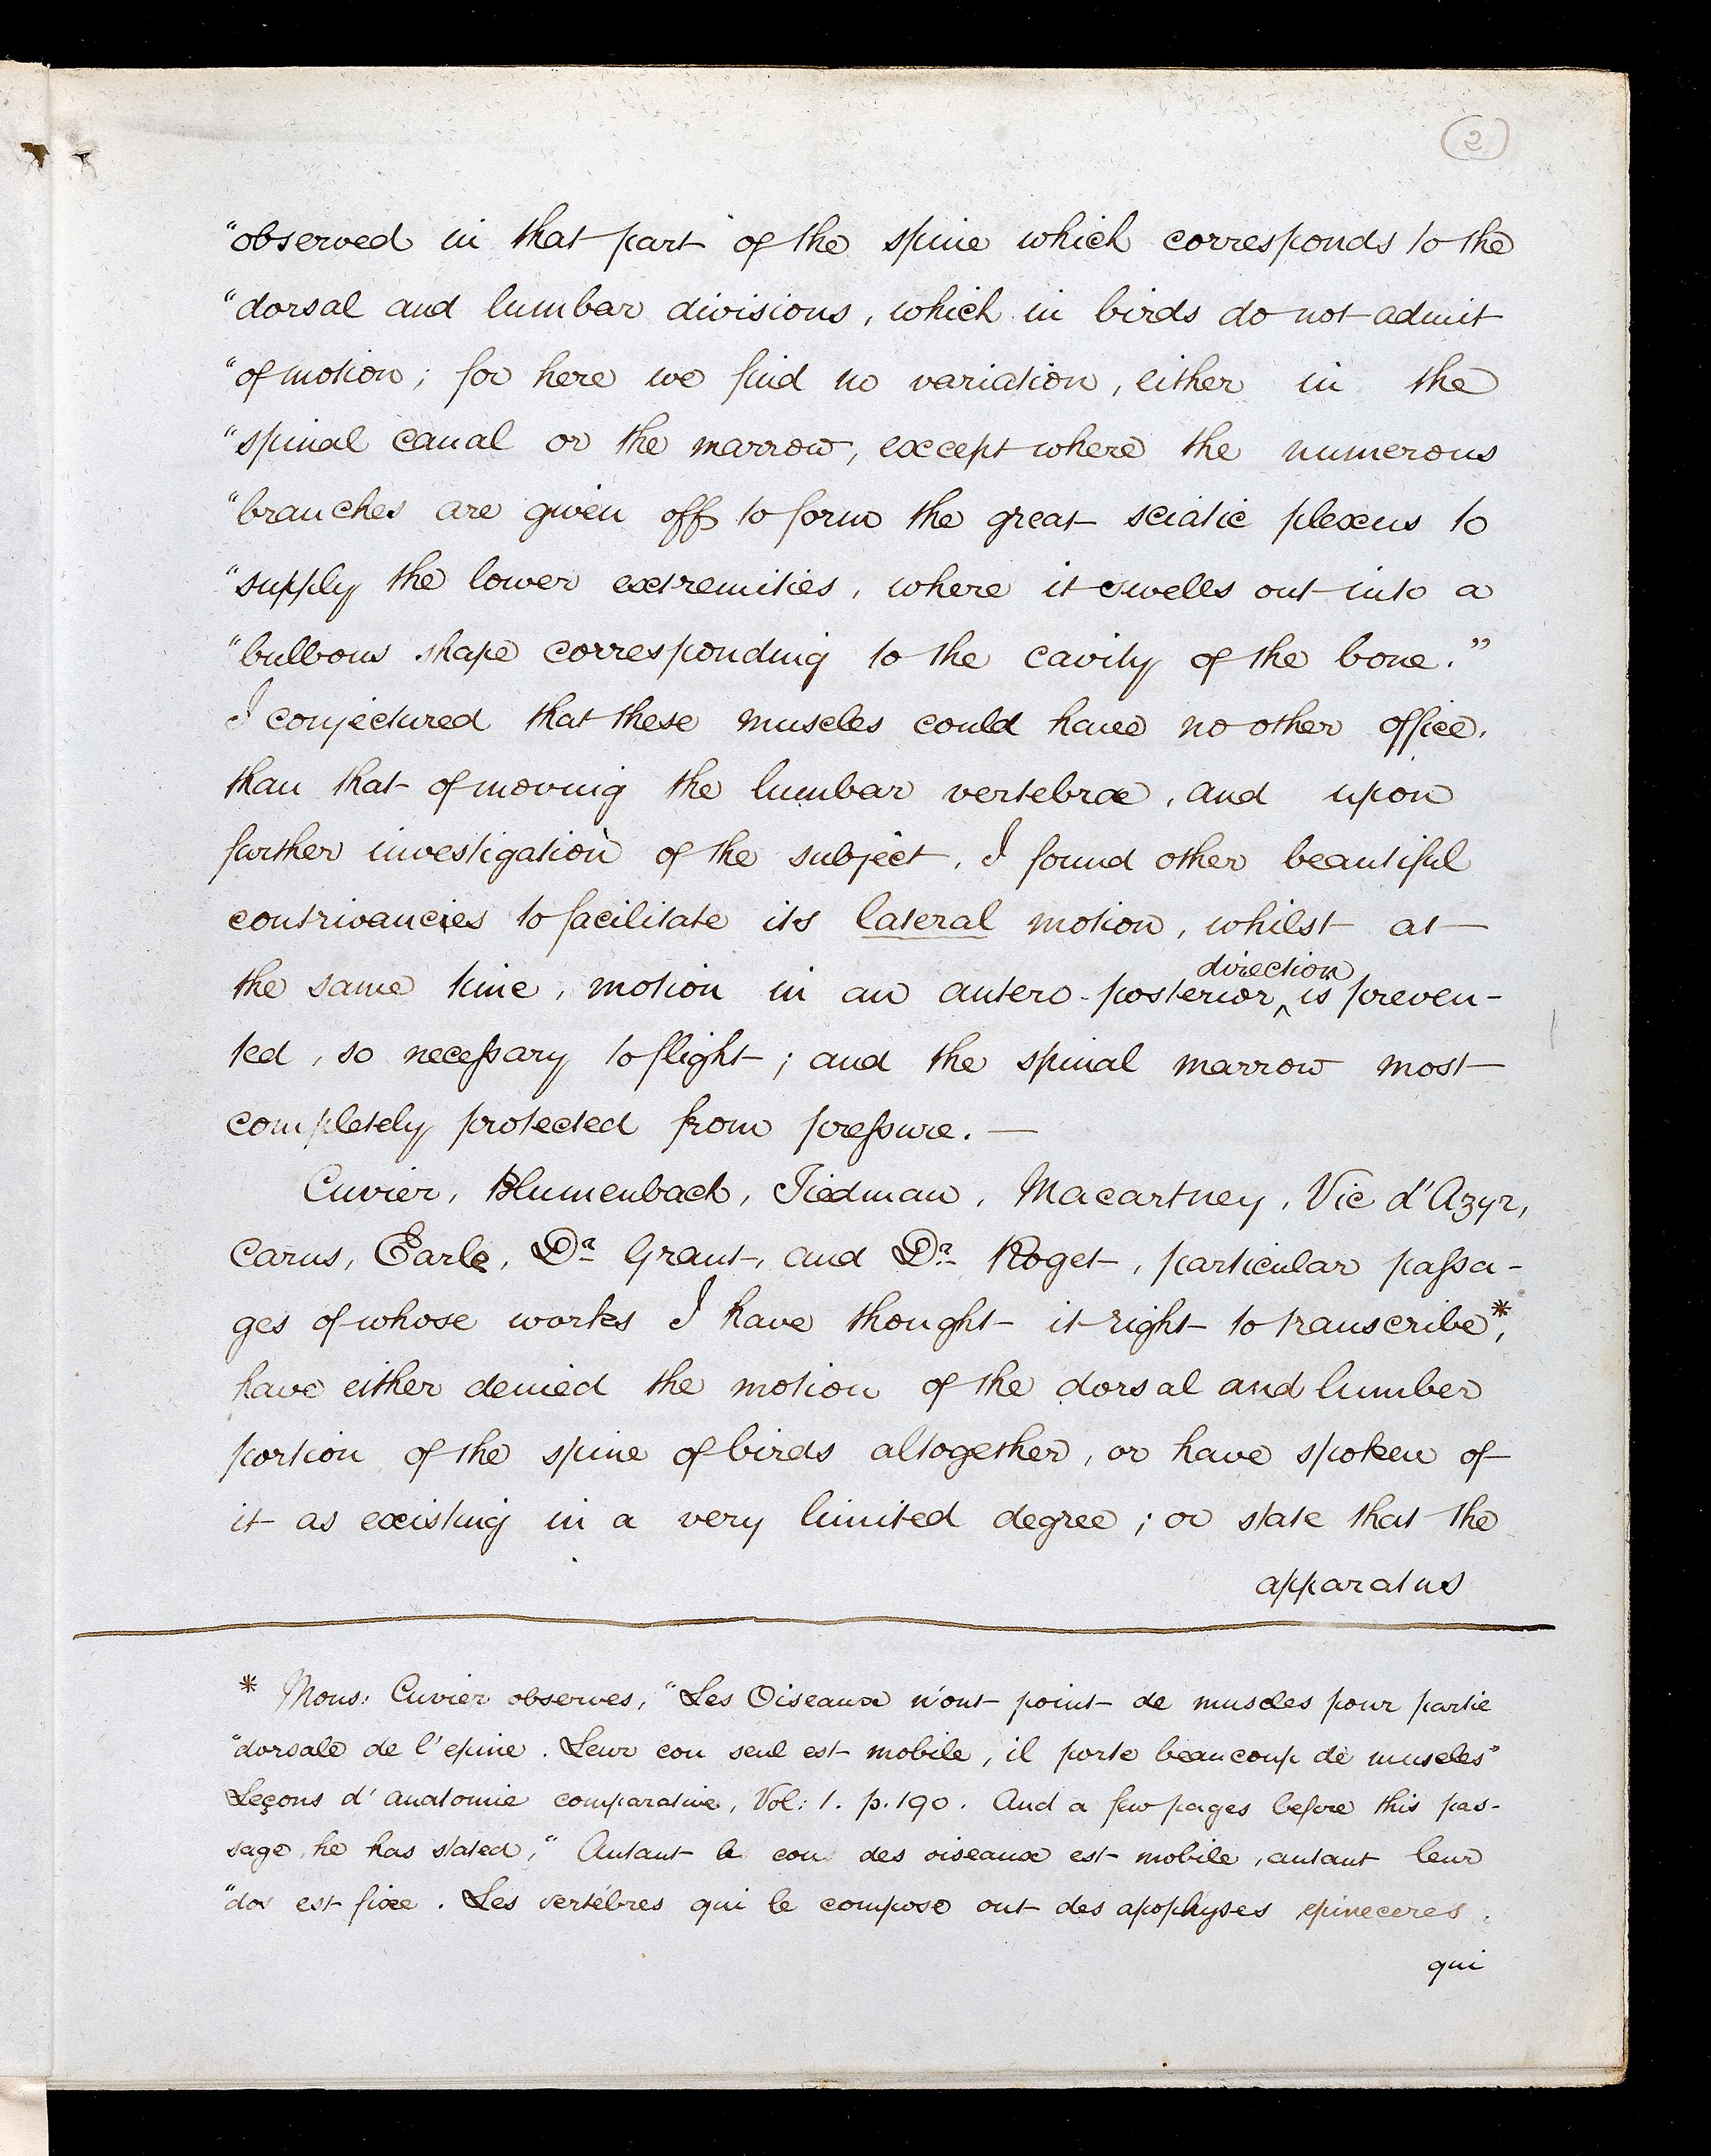 (2)
"observed in that part of the spine which corresponds to the
"dorsal and lumbar divisions, which in birds do not admit
"of motion; for here we find no variation, either in the
"spinal canal or the marrow, except where the numerous
"branches are given off to form the great sciatic plexus to
"supply the lower extremities, where it swells out into a
"bulbous shape corresponding to the cavity of the bone."
I conjectured that these muscles could have no other office,
than that of moving the lumbar vertebræ, and upon
further investigation of the subject, I found other beautiful
contrivancies to facilitate its lateral motion, whilst at
direction
the same time, motion in an antero-posterior ‸ is preven-
ted, so necessary to flight; and the spinal marrow most
completely protected from pressure. —
Cuvier, Blumenbach, Tiedman, Macartney, Vic d'Azyr,
Carus, Earle, Dr. Grant, and Dr. Roget, particular passa-
ges of whose works I have thought it right to transcribe*,
have either denied the motion of the dorsal and lumber
portion of the spine of birds altogether, or have spoken of
it as existing in a very limited degree; or state that the
apparatus
* Mons: Cuvier observes, "Les Oiseaux n'ont point de muscles pour partie
"dorsale de l'epine. Leur cou seul est mobile, il porte beaucoup de muscles"
Leçons d'anatomie comparative, Vol: 1. p. 190. And a few pages before this pas-
sage, he has stated, "Autant le cou des oiseaux est mobile, autant leur
"dos est fixe. Les vertébres qui le compose ont des apophyses epineceres
qui